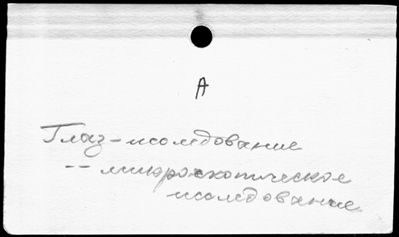 А
Глаз-исследование
-- микроскопическое
исследование